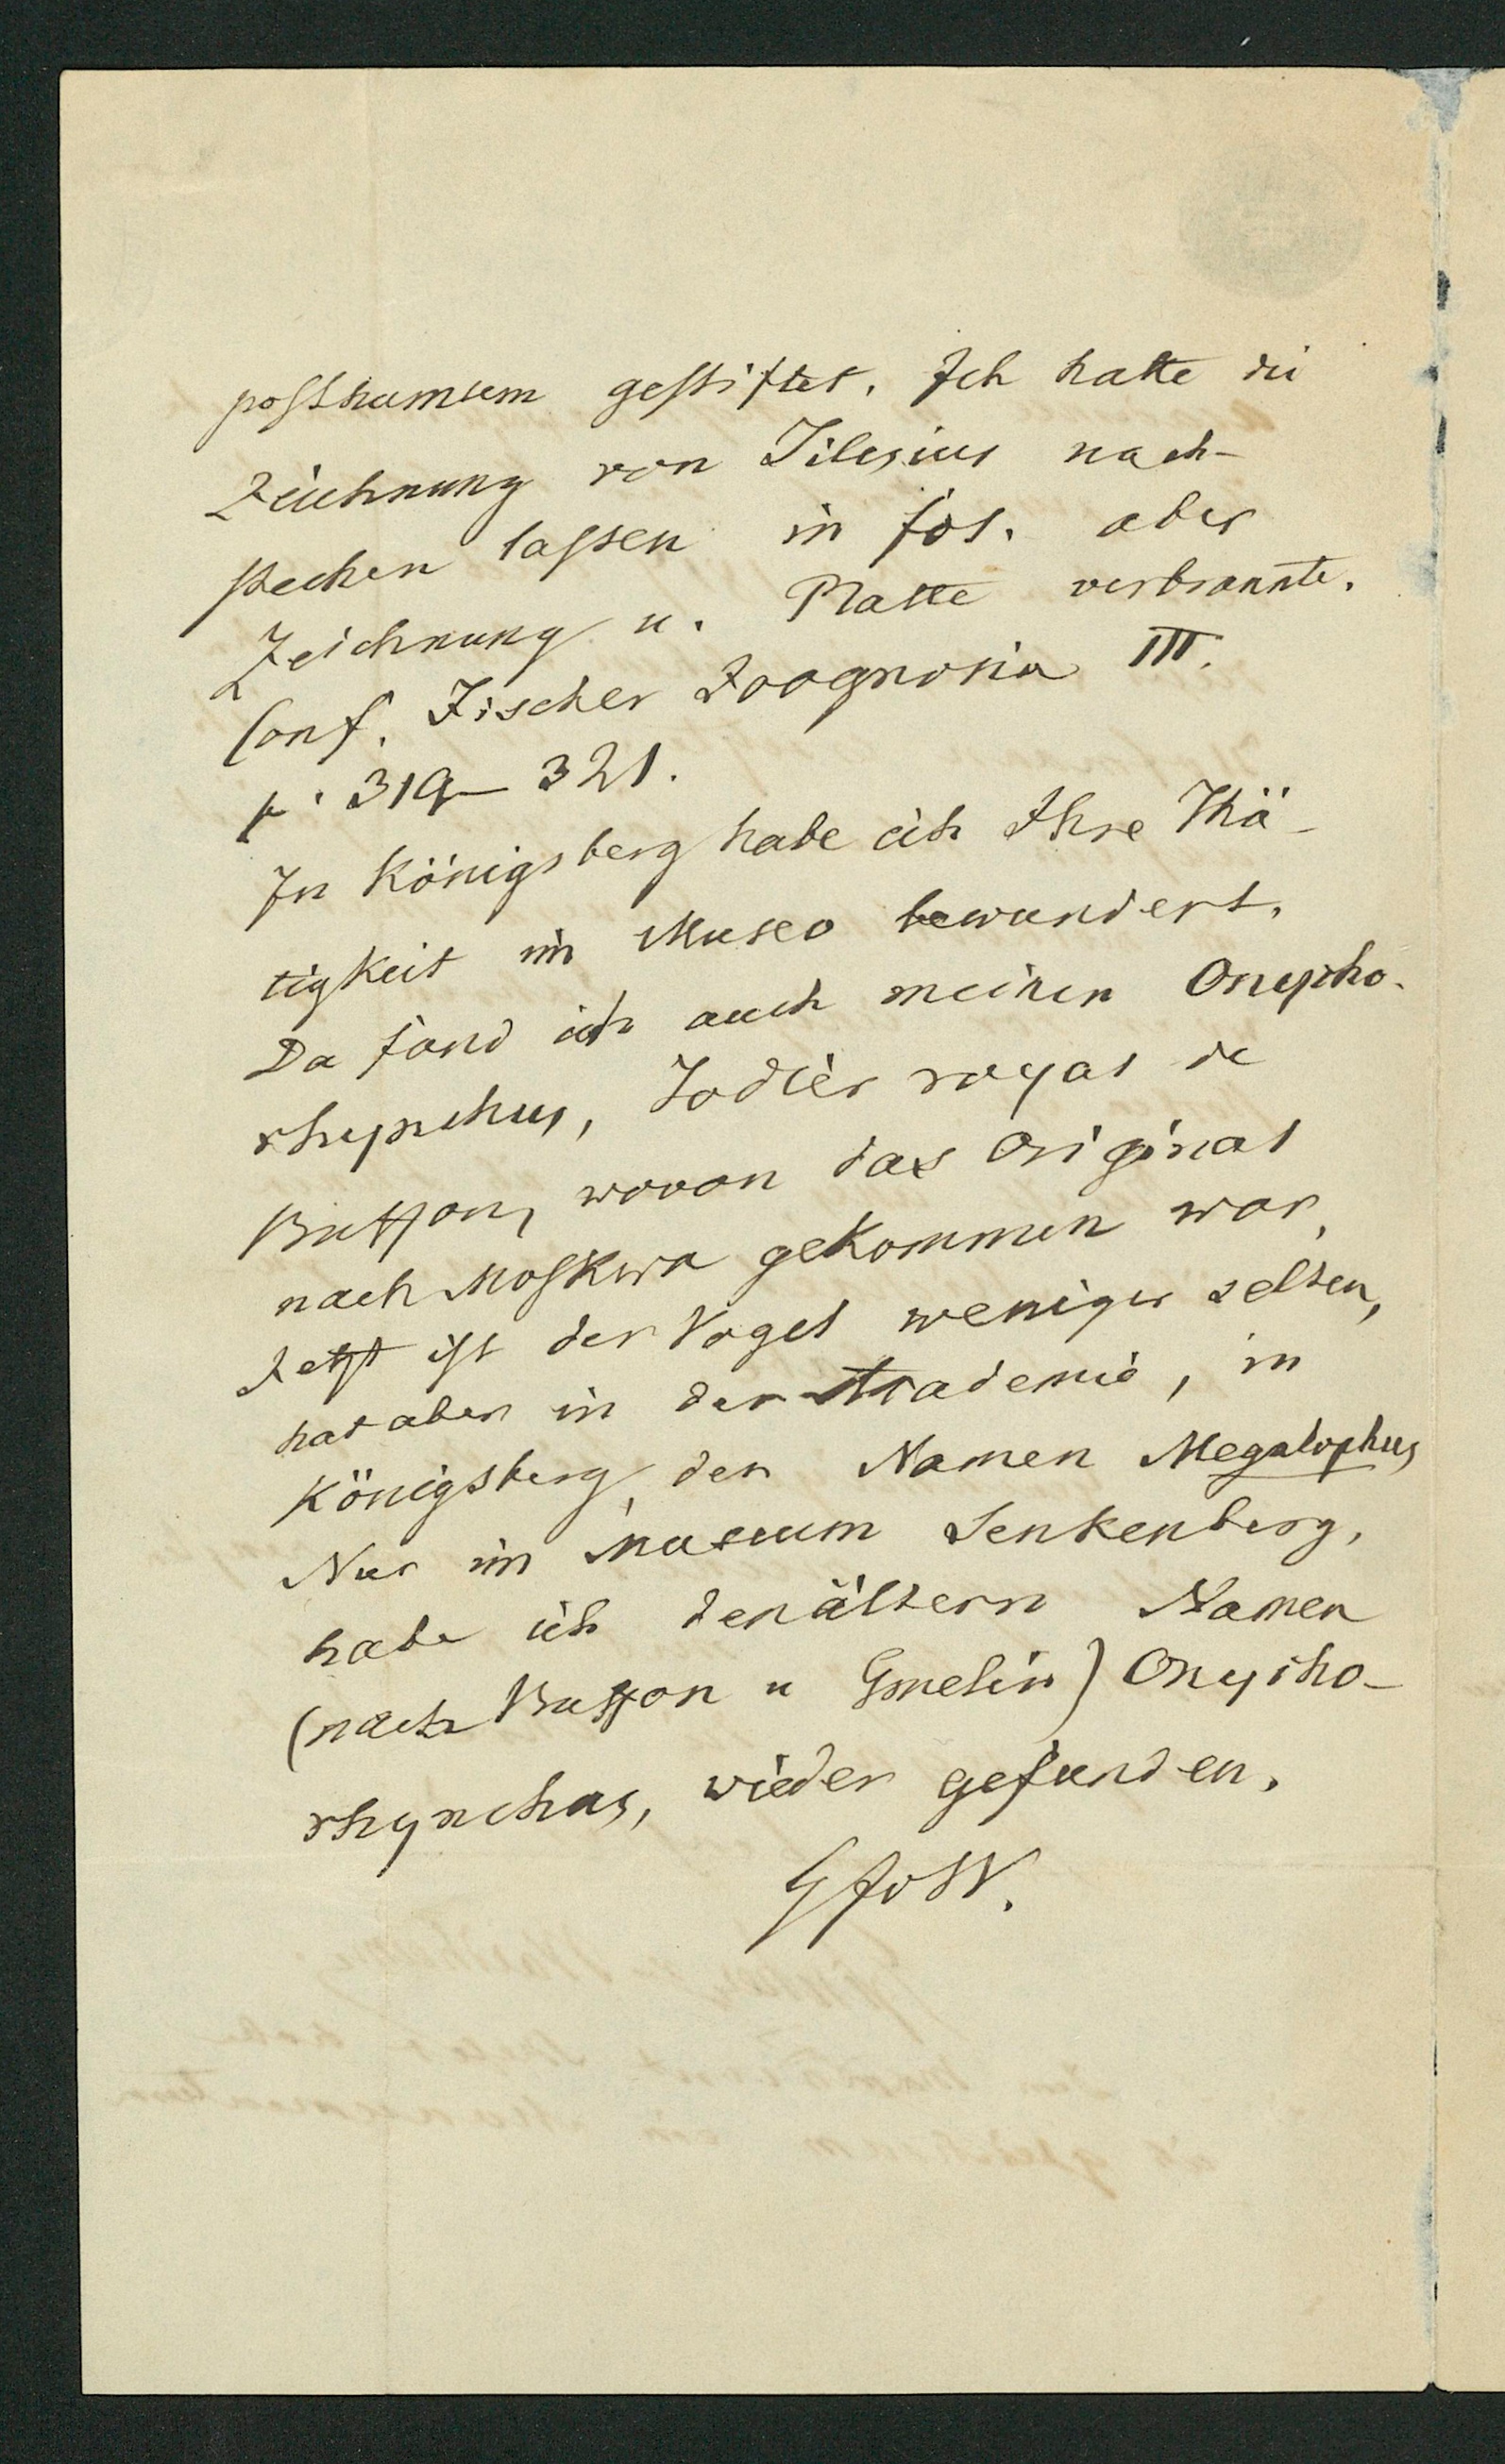 posthumum gestiftet. Ich hatte die
Zeichnung von Tilesius nach-
stechen lassen in fol. aber
Zeichnung u. Platte verbrannte.
Conf. Fischer Zoognosia III.
p. 319–321.
In Königsberg habe ich Ihre Thä-
tigkeit im Museo bewundert.
Da fand ich auch meinen Onycho-
rhynchus, Todier royal de
Buffon, wovon das Original
nach Moskwa gekommen war,
Jetzt ist der Vogel weniger selten,
hat aber in der Academie, in
Königsberg, den Namen Megalophus
Nur im Museum Senkenberg.
habe ich den ältern Namen
(nach Buffon u Gmelin) Onycho-
rhynchus, wieder gefunden.
GFvW.